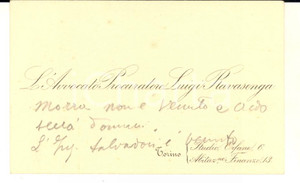 L'Avvocato Procuratore Luigi Ravasenga
Morra non è venuto e
sarà domani.
L'Ing. Salvadori è venuto
Torino
Studio,
Abitaz.ne Finanze, 13